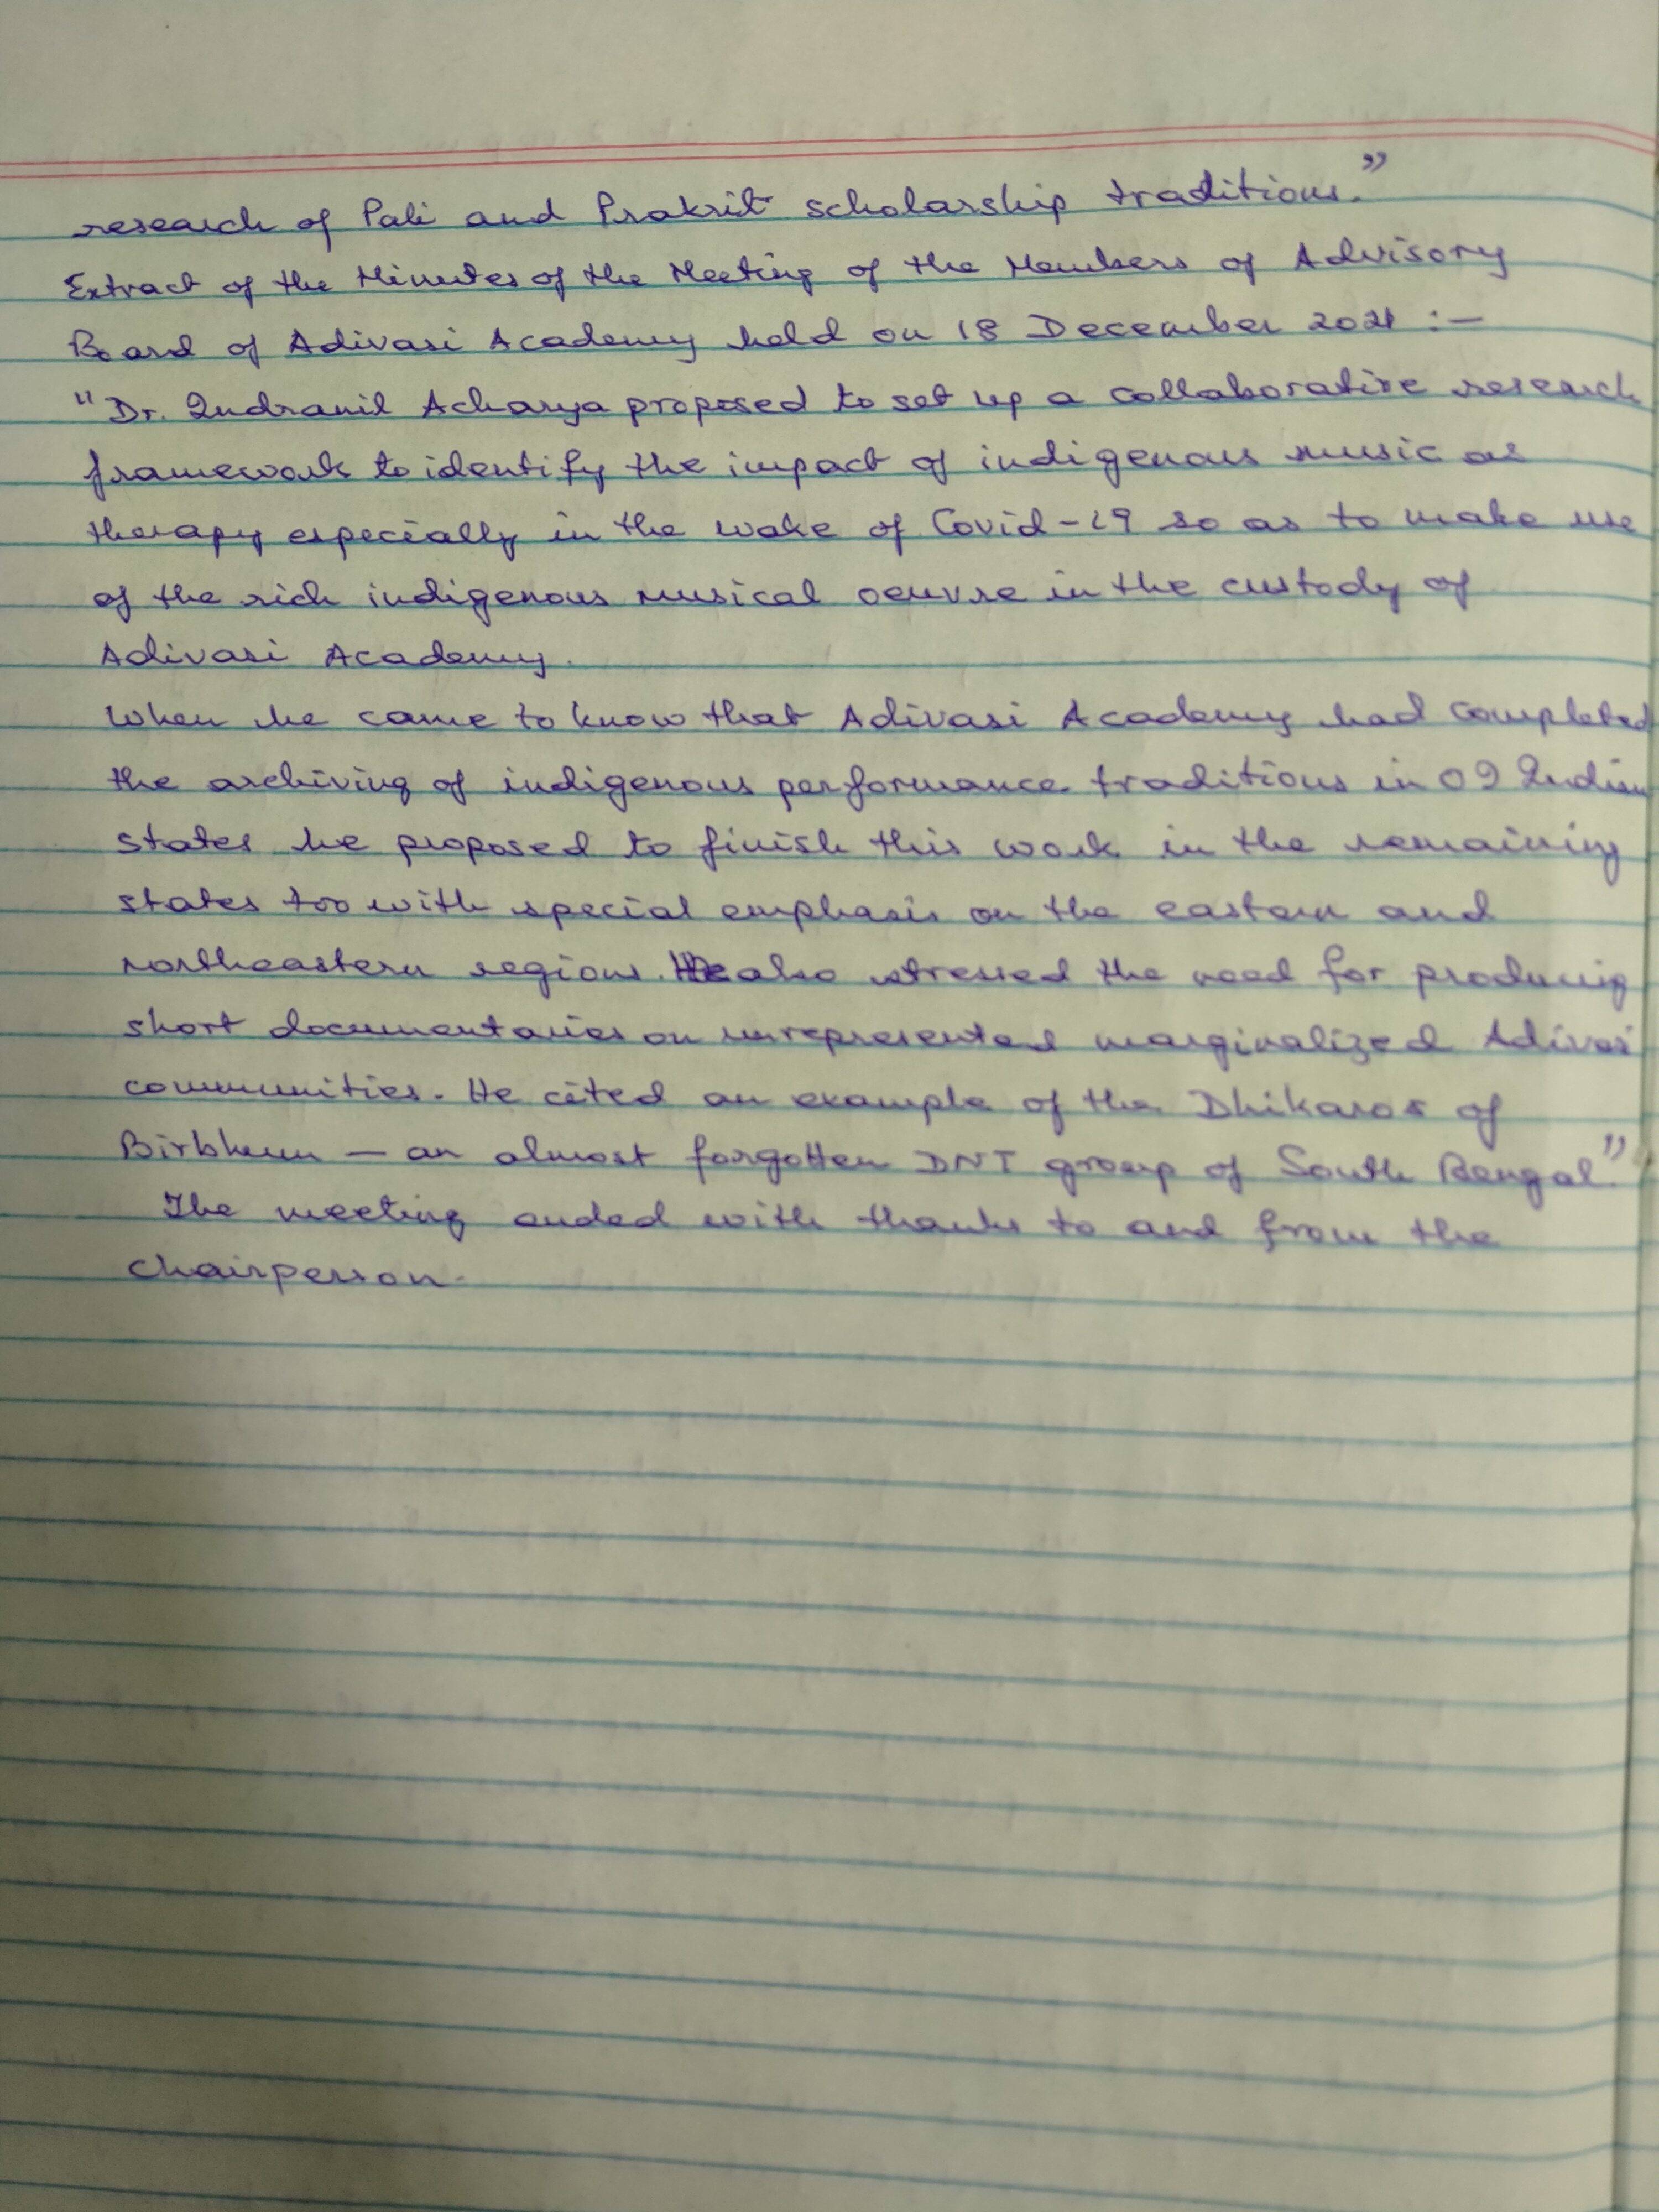 research of Pali and Prakrit scholarship traditions."
Extract of the Minutes of the Meeting of the Members of Advisory
Board of Adivasi Academy held on 18 December 2021 :-
"Dr. Indranil Acharya proposed to set up a collaborative research
framework to identify the impact of indigenous music as
therapy especially in the wake of Covid-19 so as to make use
of the rich indigenous musical oeuvre in the custody of
Adivasi Academy.
When he came to know that Adivasi Academy had completed
the archiving of indigenous performance traditions in 09 Indian
states he proposed to finish this work in the remaining
states too with special emphasis on the eastern and
northeastern regions. He also stressed the need for producing
short documentaries on unrepresented marginalized Adivasi
communities. He cited an example of the Dhikaros of
Birbhum — an almost forgotten DNT group of South Bengal."
The meeting ended with thanks to and from the
chairperson.